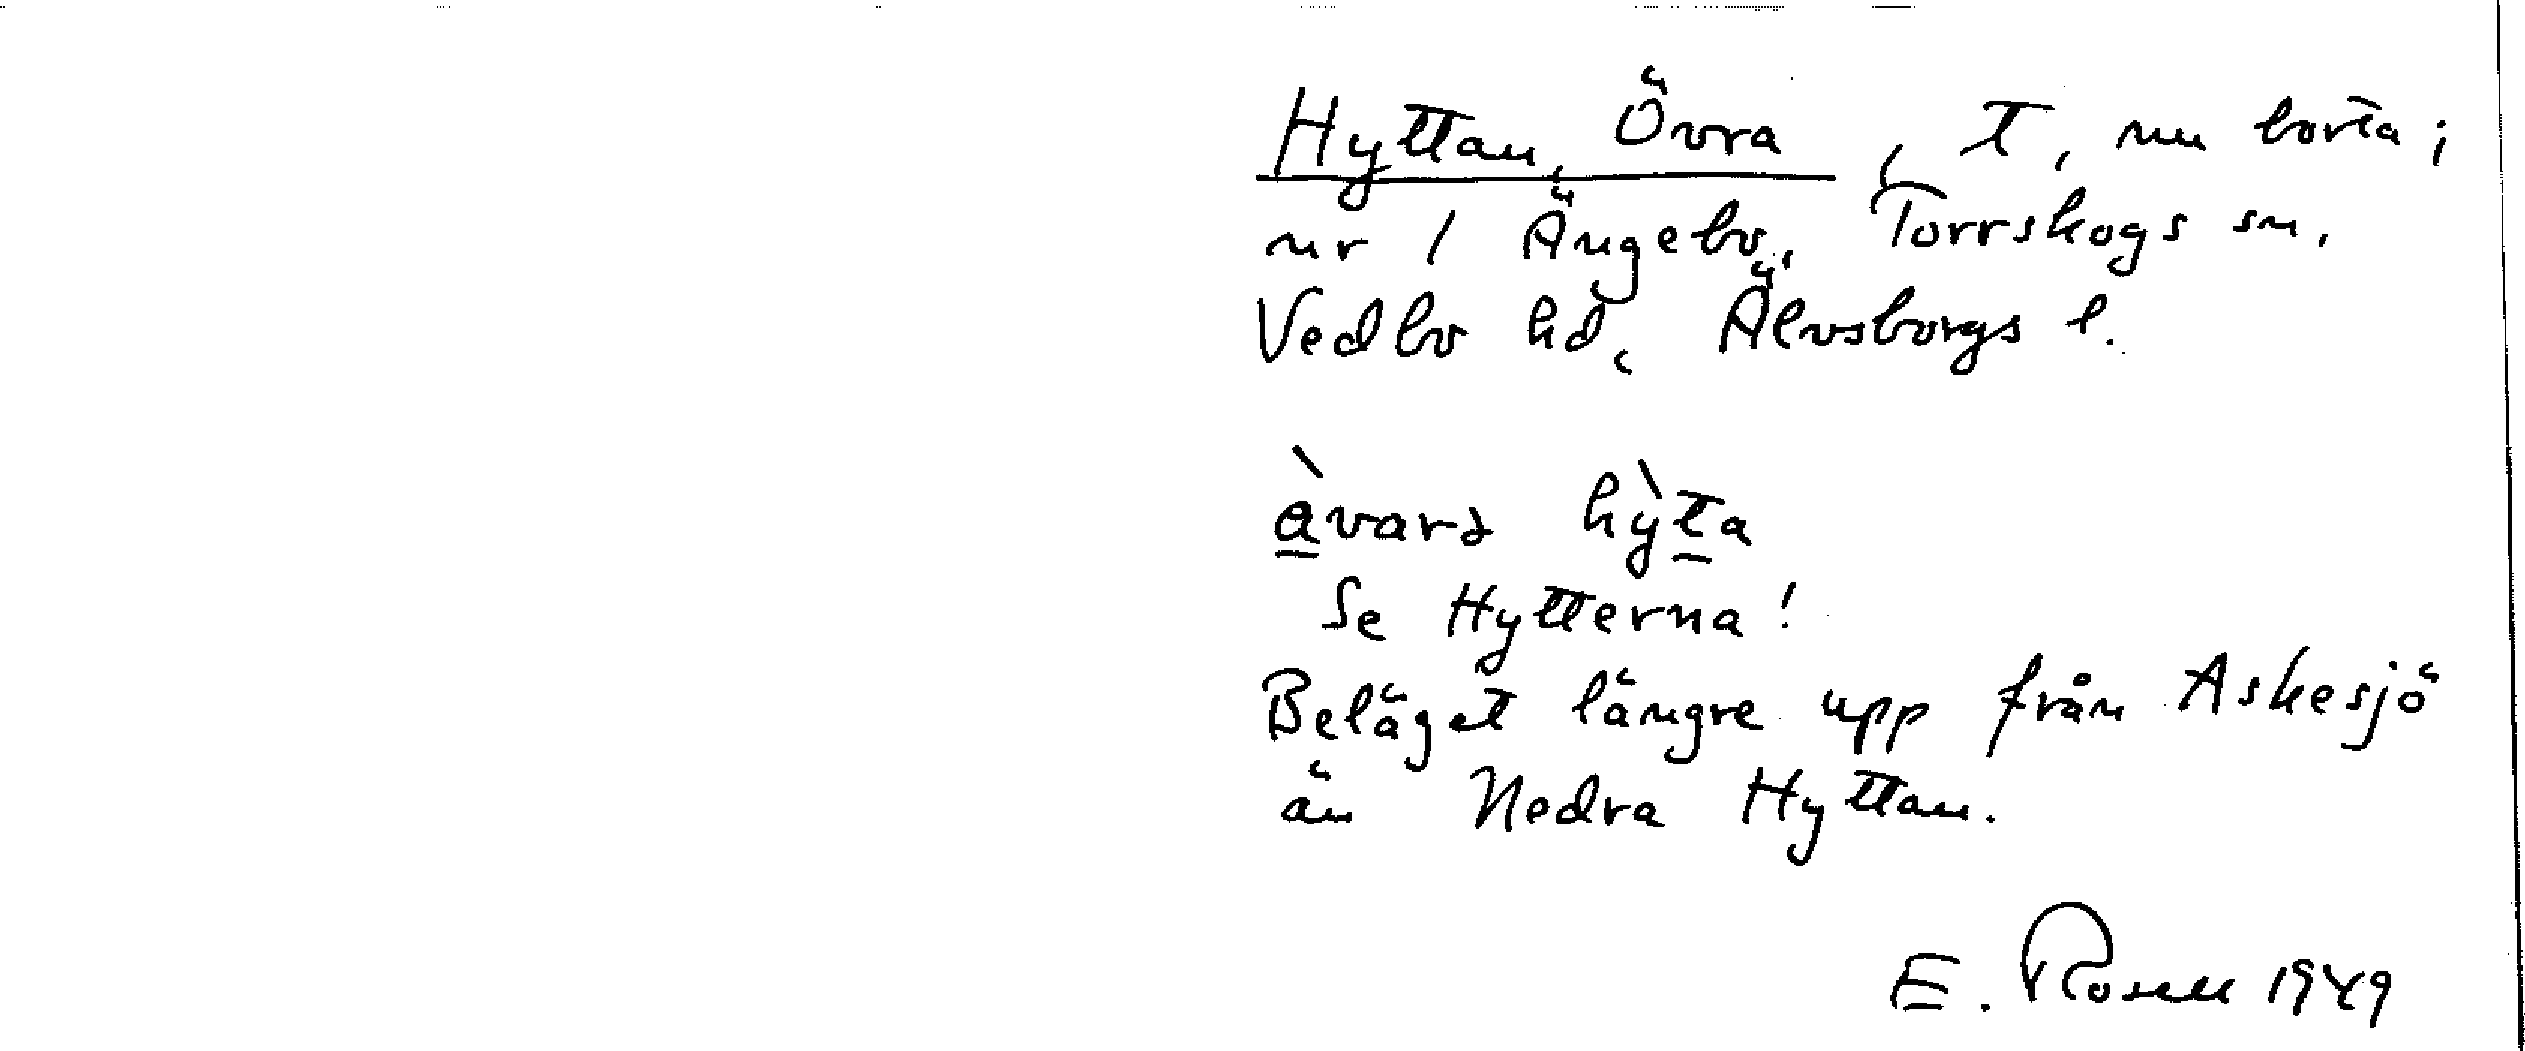 Hyttan, Övra, T, nu borta;
nr 1 Ängebo, Torrskogs sn,
Vedbo hd, Älvsborgs l.
à̲varə hỳt̲a
Se Hytterna!
Beläget längre upp från Askesjö
än Nedra Hyttan.
E. Rosell 1949